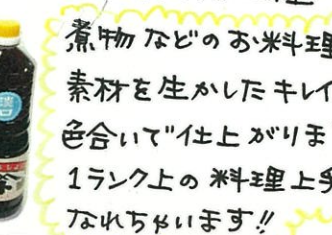 煮物などのお料理
素材を生かしたキレイ
色合いで仕上がりま
1ランク上の料理上手
なれちゃいます!!